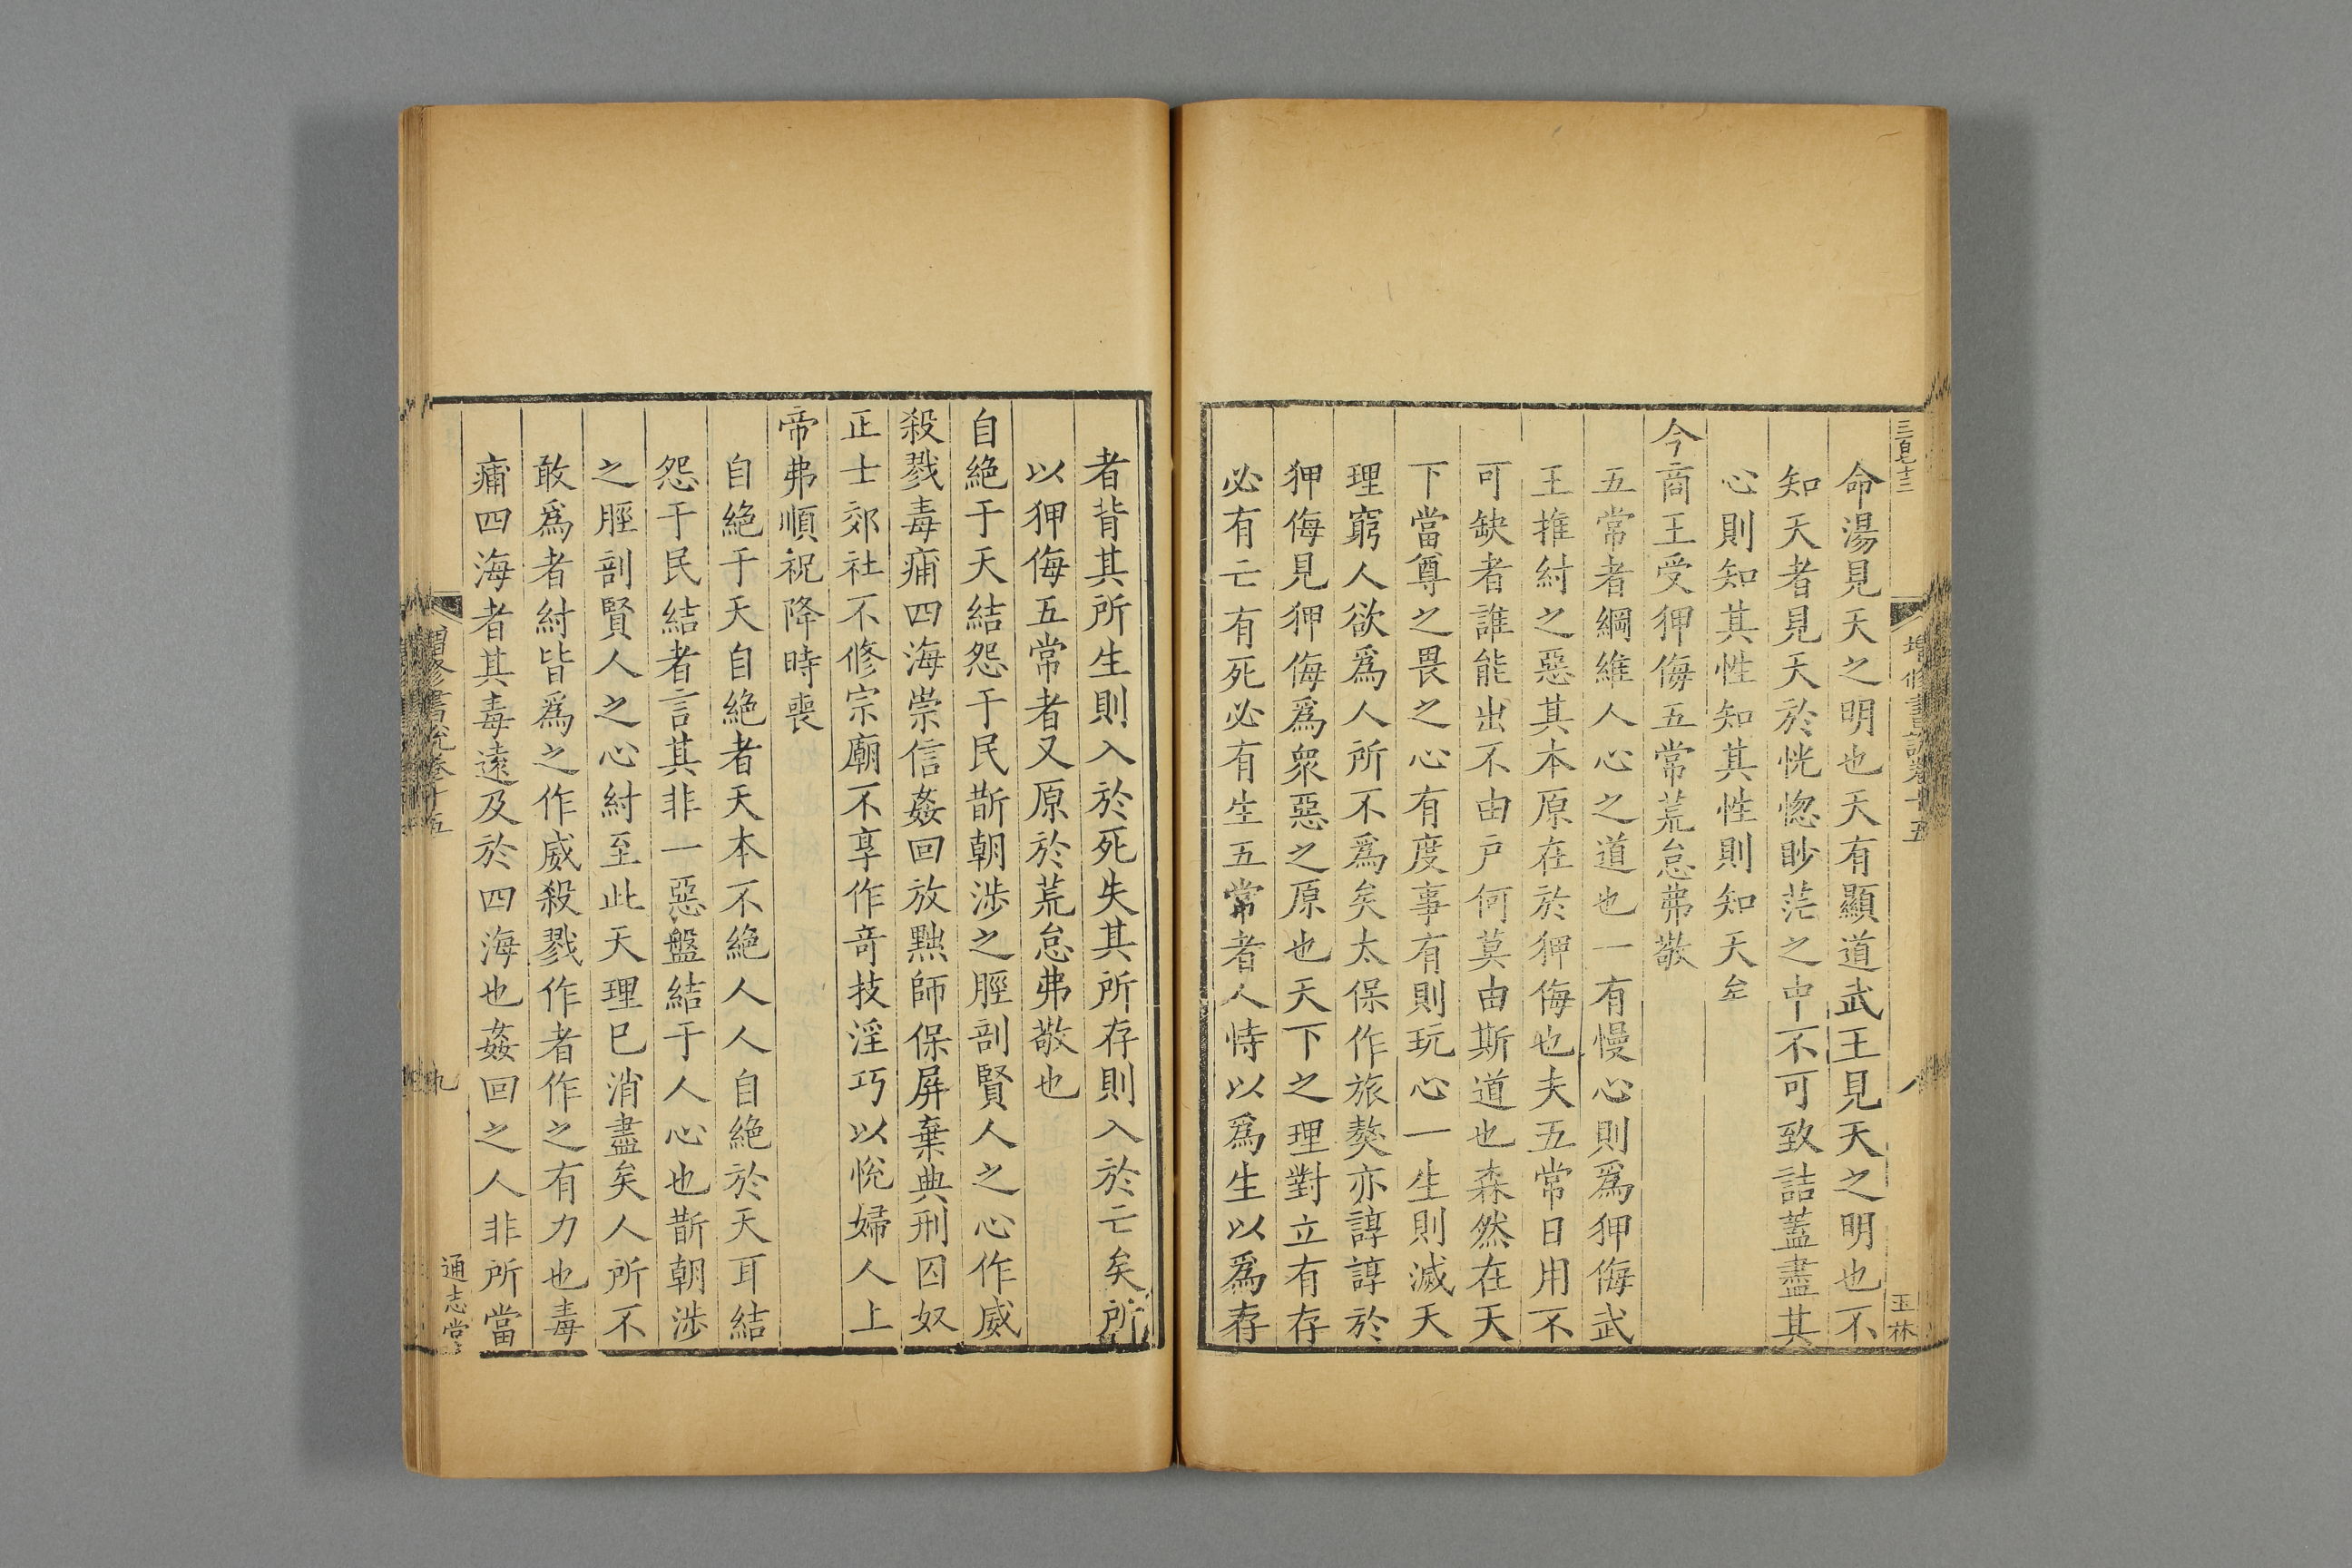 三百七十三
增修書說卷十五
八
玉林
命湯見天之明也天有顯道武王見天之明也不
知天者見天於恍惚眇茫之中不可致詰蓋盡其
心則知其性知其性則知天矣
今商王受狎侮五常荒怠弗敬
五常者綱維人心之道也一有慢心則爲狎侮武
王推紂之惡其本原在於狎侮也夫五常日用不
可缺者誰能出不由戶何莫由斯道也森然在天
下當尊之畏之心有度事有則玩心一生則滅天
理窮人欲爲人所不爲矣太保作旅獒亦諄諄於
狎侮見狎侮爲衆惡之原也天下之理對立有存
必有亡有死必有生五常者人恃以爲生以爲存
者背其所生則入於死失其所存則入於亡矣所
以狎侮五常者又原於荒怠弗敬也
自絶于天結怨于民斮朝涉之脛剖賢人之心作威
殺戮毒痡四海崇信姦回放黜師保屏棄典刑囚奴
正士郊社不修宗廟不享作奇技淫巧以悅婦人上
帝弗順祝降時喪
自絶于天自絶者天本不絶人人自絶於天耳結
怨于民結者言其非一惡盤結于人心也斮朝涉
之脛剖賢人之心紂至此天理已消盡矣人所不
敢爲者紂皆爲之作威殺戮作者作之有力也毒
痡四海者其毒遠及於四海也姦回之人非所當
增修書說卷十五
九
通志堂